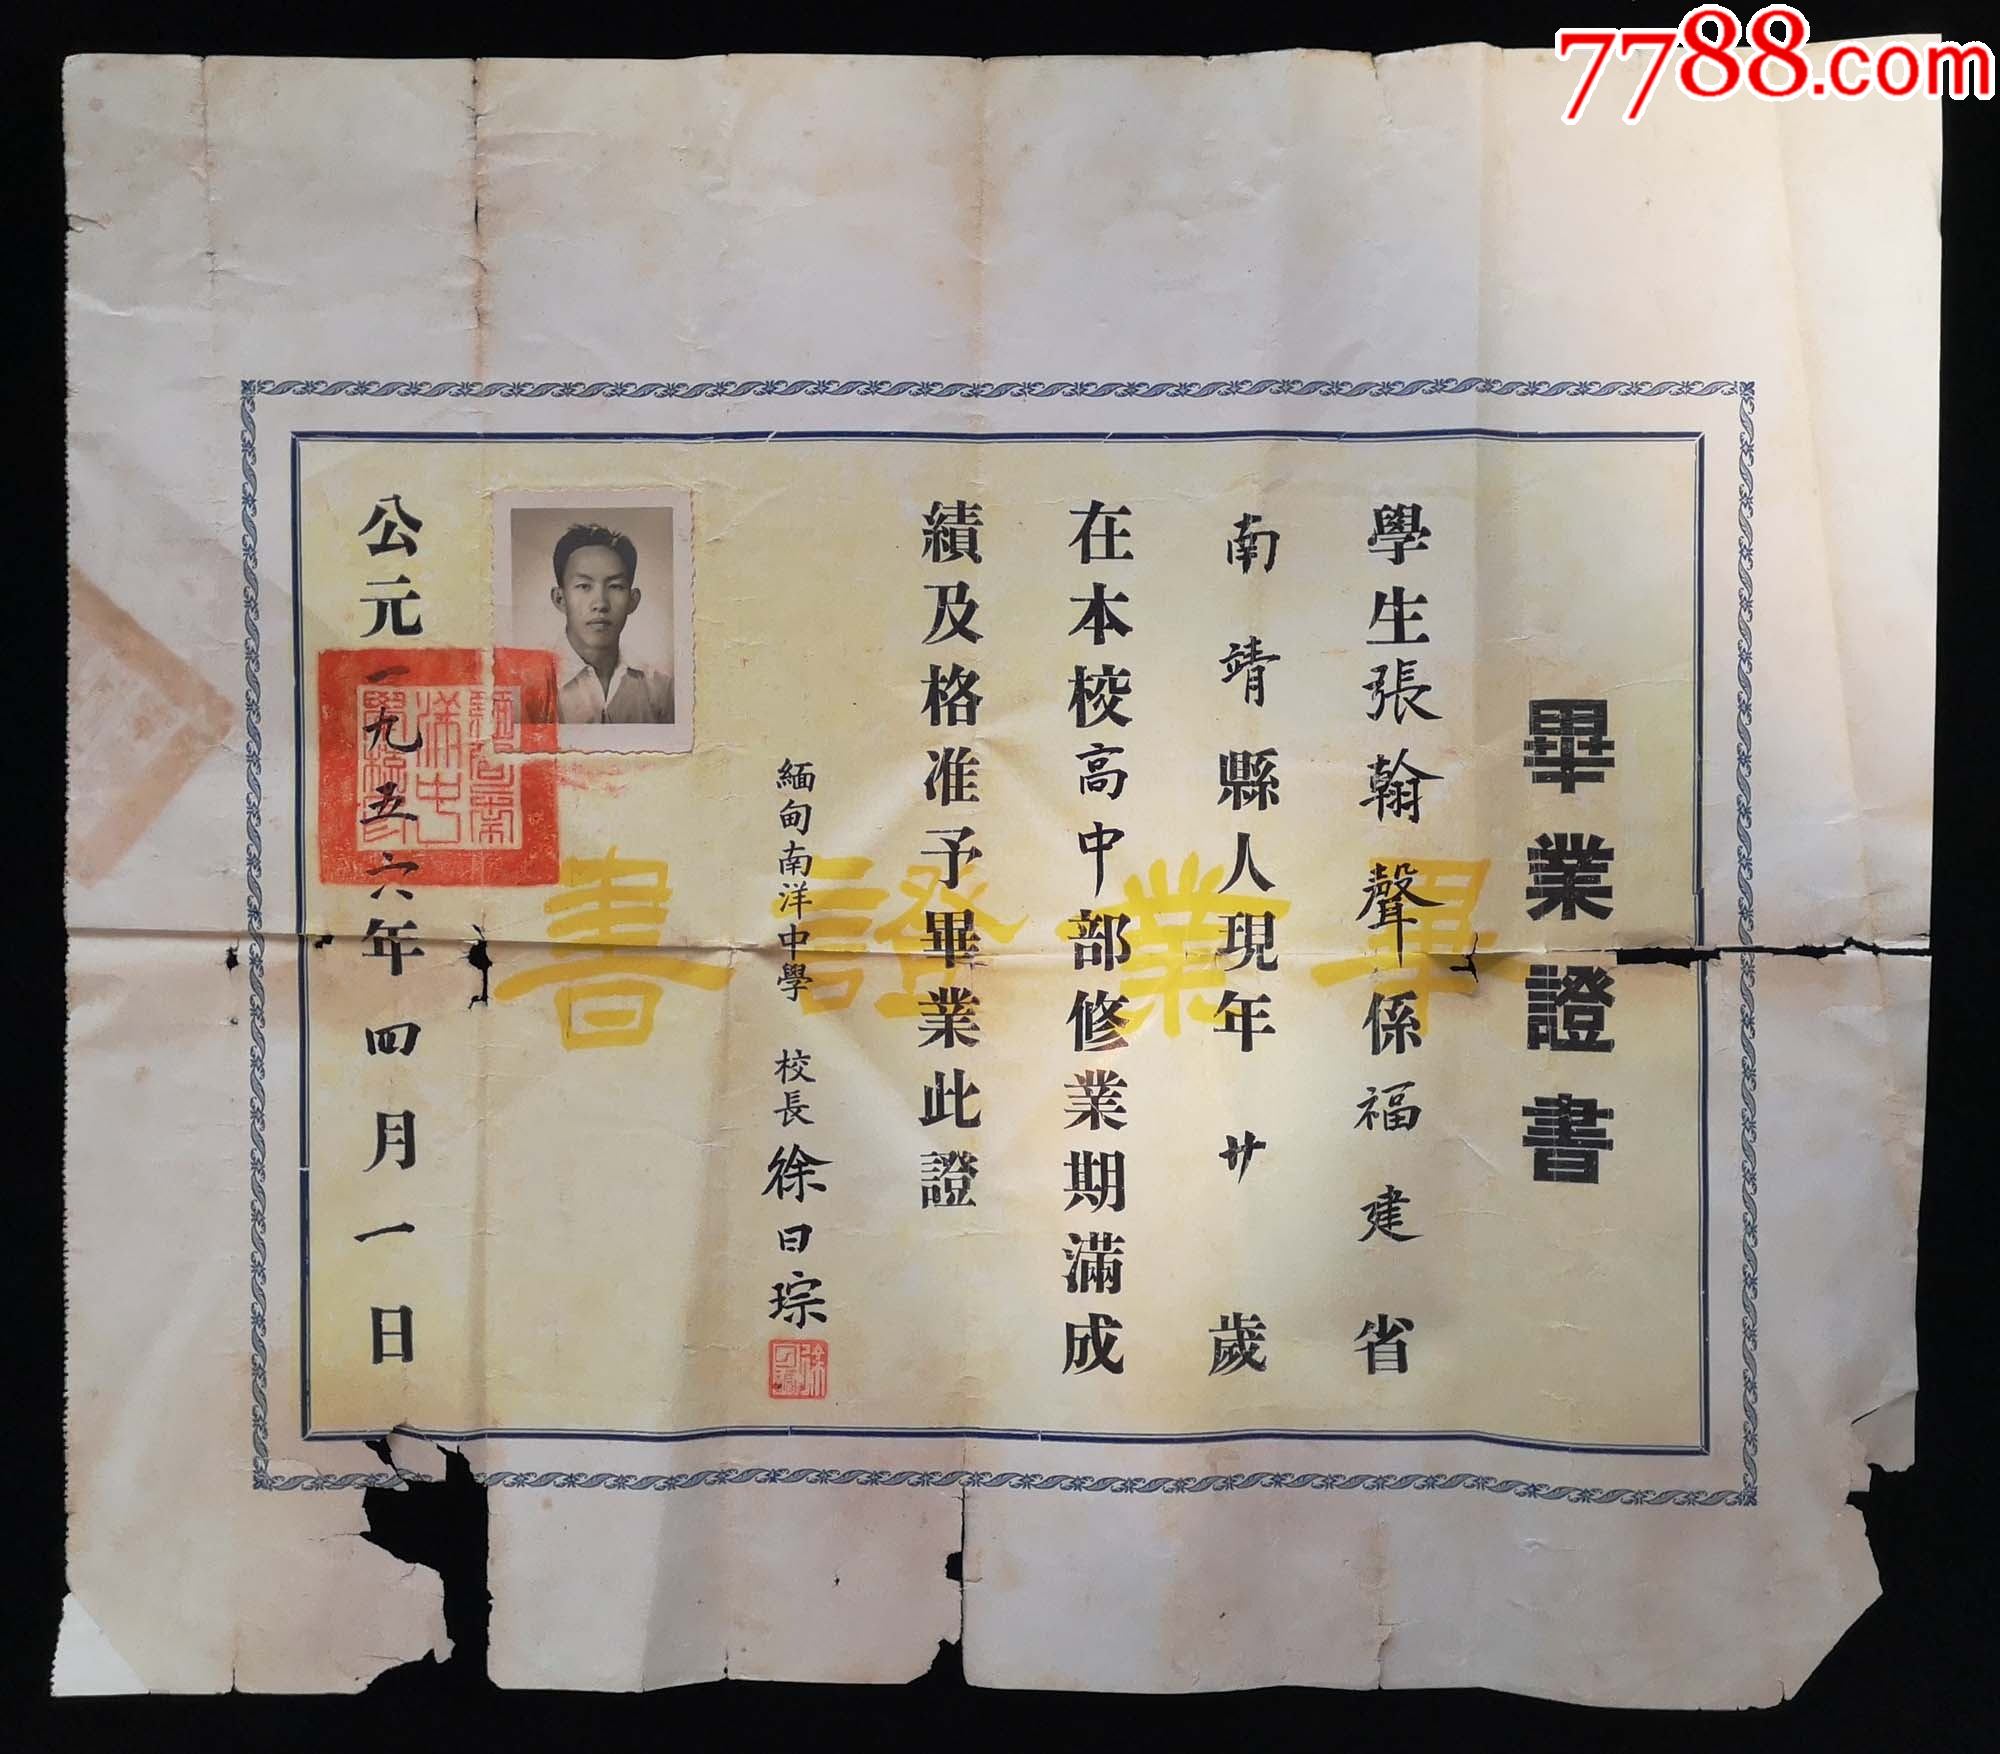 7788.com
畢業證書
學生張翰聲係福建省
南靖縣人現年廿歲
在本校高中部修業期滿成
績及格准予畢業此證
緬甸南洋中學 校長徐日琮
公元一九五六年四月一日
畢業證書